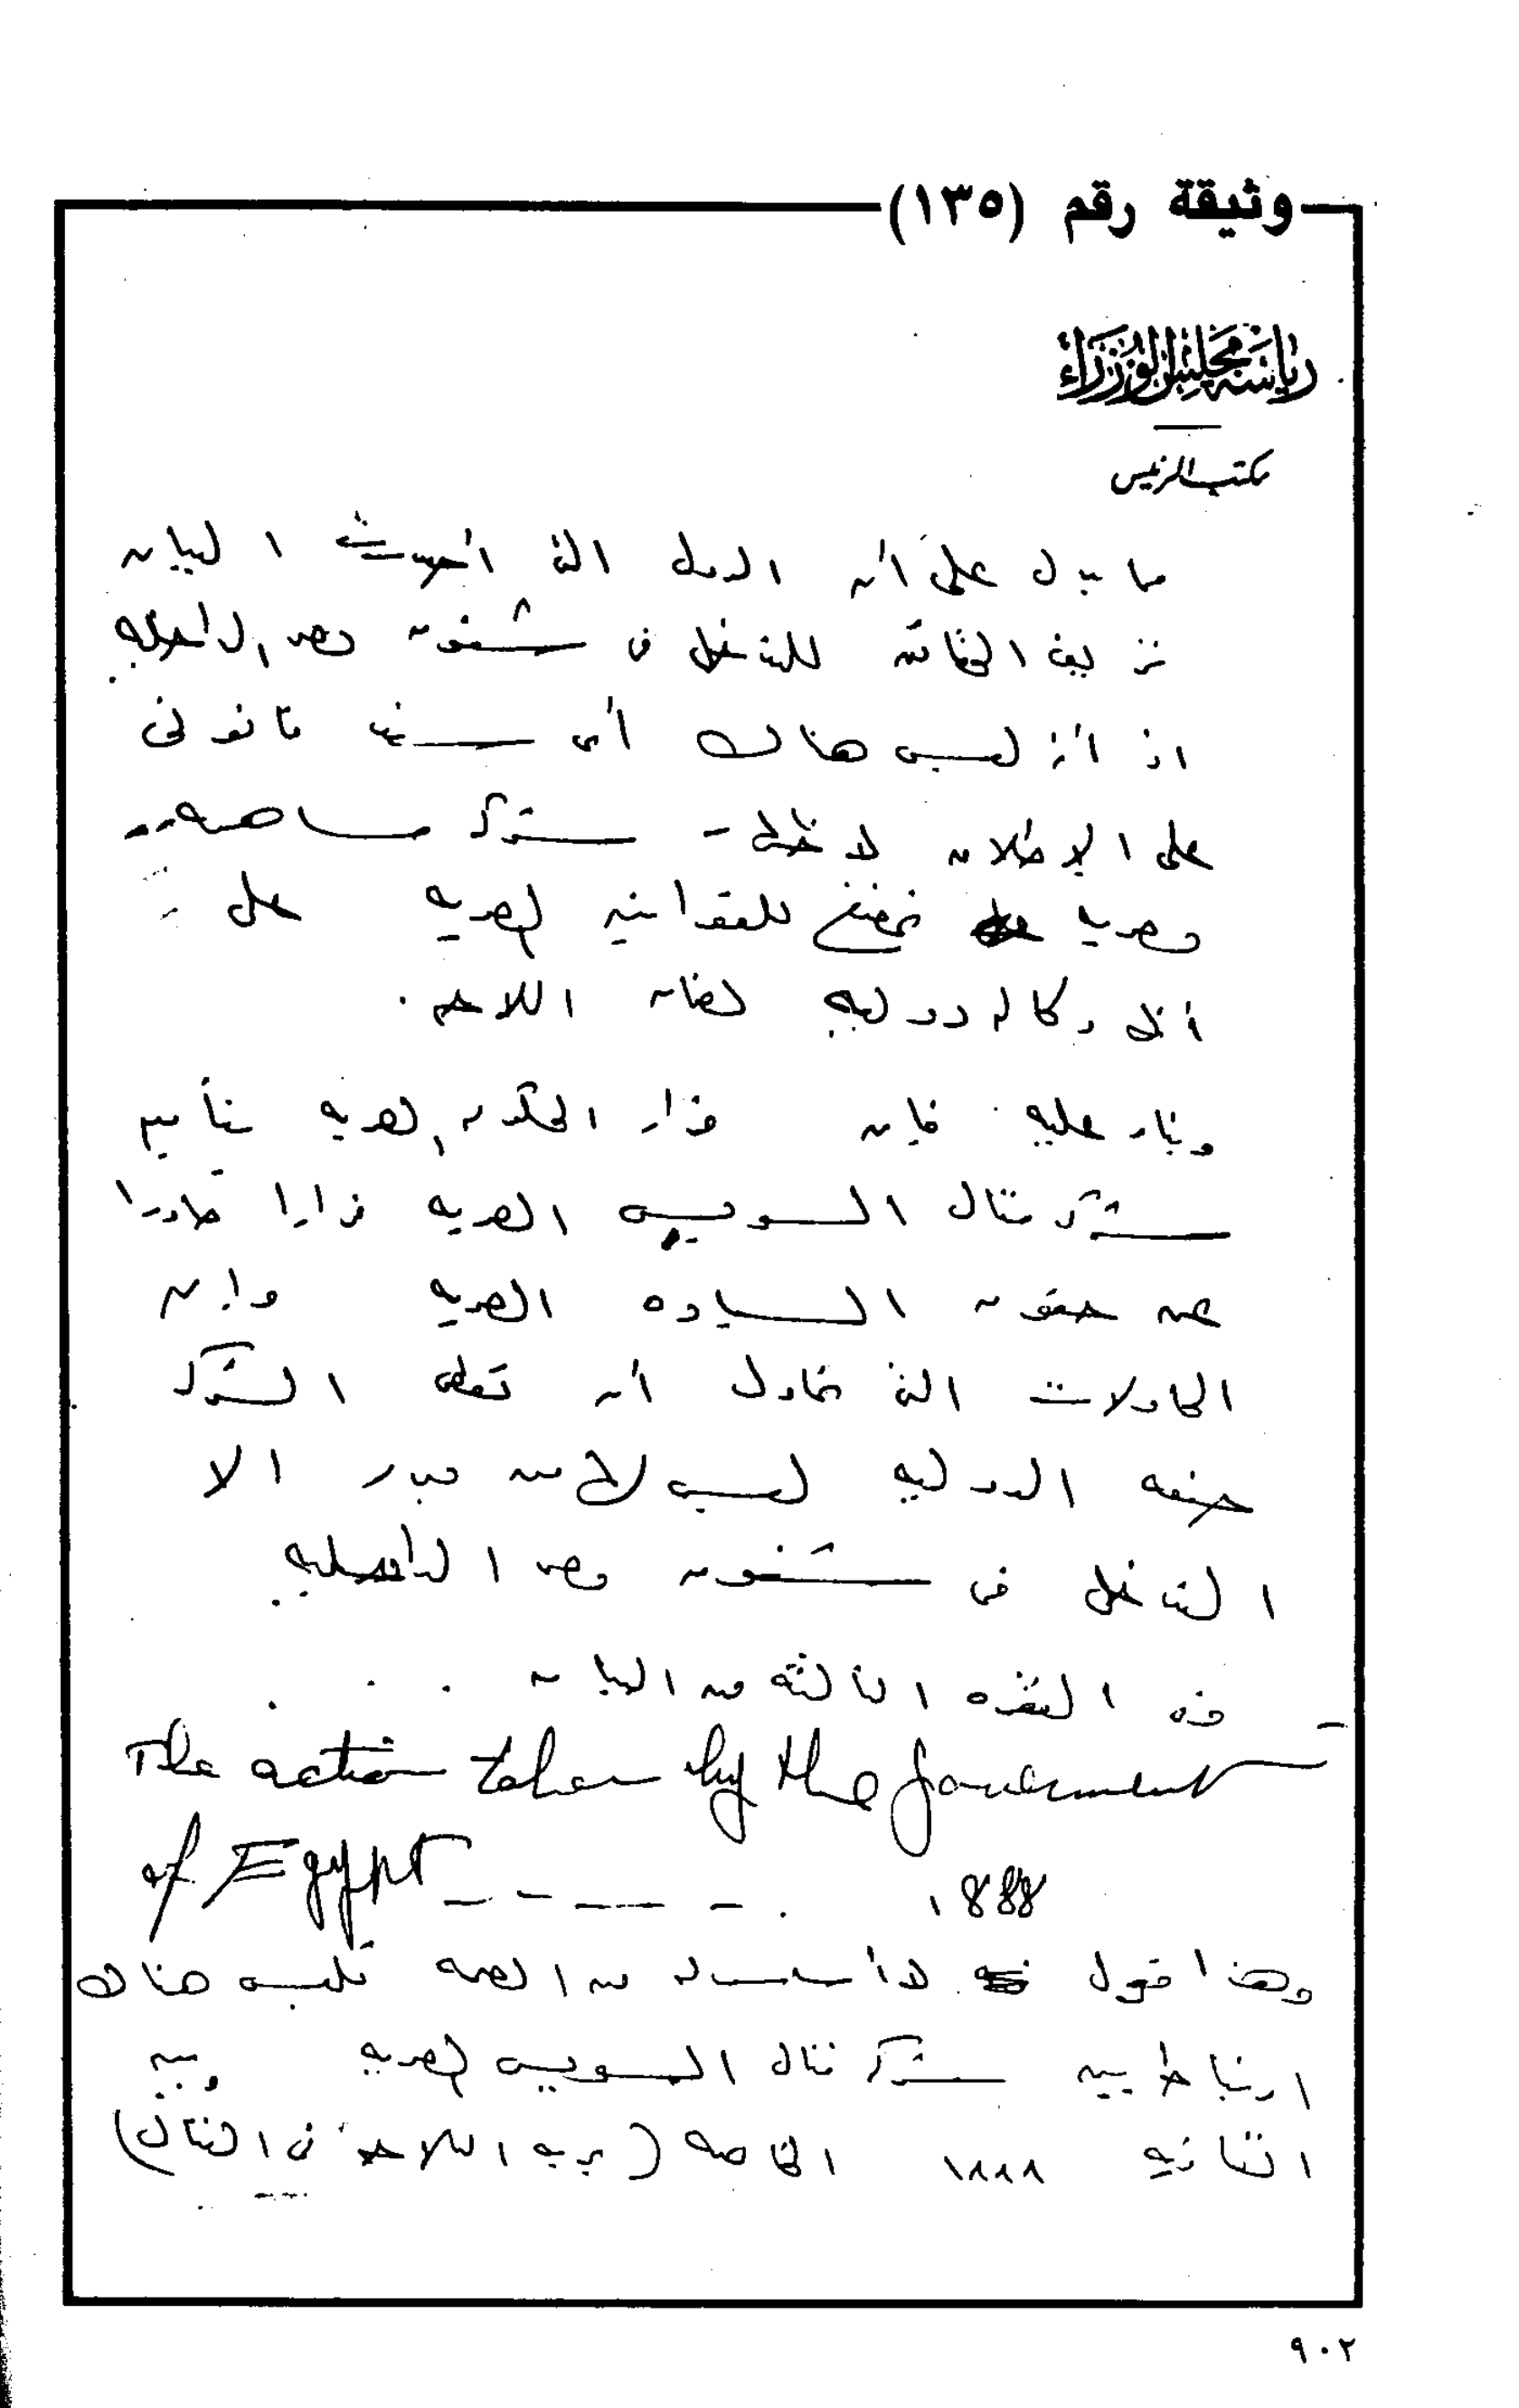 وثيقة رقم (١٣٥)
رئاسة مجلس الوزراء
مكتب الرئيس
مما يدل على أن الدول التى أصدرت البيان
تزيف الحقائق للتدخل فى شئون مصر الداخلية
اذ أنه ليس هناك أى سند قانونى
على الإطلاق شركة مساهمة
مصرية تخضع للقوانين المصرية على
أنها وكالة دولية لضمان الملاحة .
وبناء عليه فإن قرار الحكومة المصرية بتأميم
شركة قنال السويس المصرية قرارا صادرا
عن حقوق السيادة المصرية وإن
المحاولات التى تحاول أن تعطى الشركة
صفة الدولية ليس لها من مبرر الا
التدخل فى شئون مصر الداخلية .
- فى الفقرة الثالثة من البيان . . .
The action taken by the Government
of Egypt - - - - - . 1888
وهذا قول لا أساس له من الصحة فليس هناك
ارتباط بين شركة قنال السويس المصرية وبين
اتفاقية ١٨٨٨ الخاصة (بحرية الملاحة فى القنال)
٩٠٢